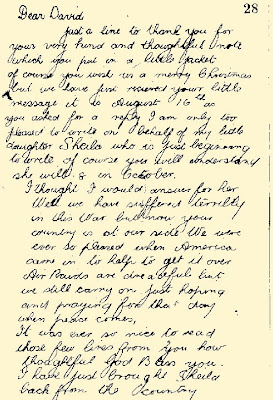 28
Dear David
just a line to thank you for
your very kind and thoughtful note
which you put in a little jacket
of course you wish us a merry Christmas
but we have just received your little
message it is August 16th as
you asked for a reply I am only too
pleased to write on behalf of my little
daughter Sheila who is just beginning
to write of course you will understand
she will 8 in October.
I thought I would answer for her
Well we have suffered terribly
in this War but now your
country is at our side We were
ever so pleased when America
came in to help to get it over
Air Raids are dreadful but
we still carry on just hoping
and praying for that day
when peace comes,
It was ever so nice to read
those few lines from you how
thoughtful God Bless you.
I have just brought Sheila
back from the country